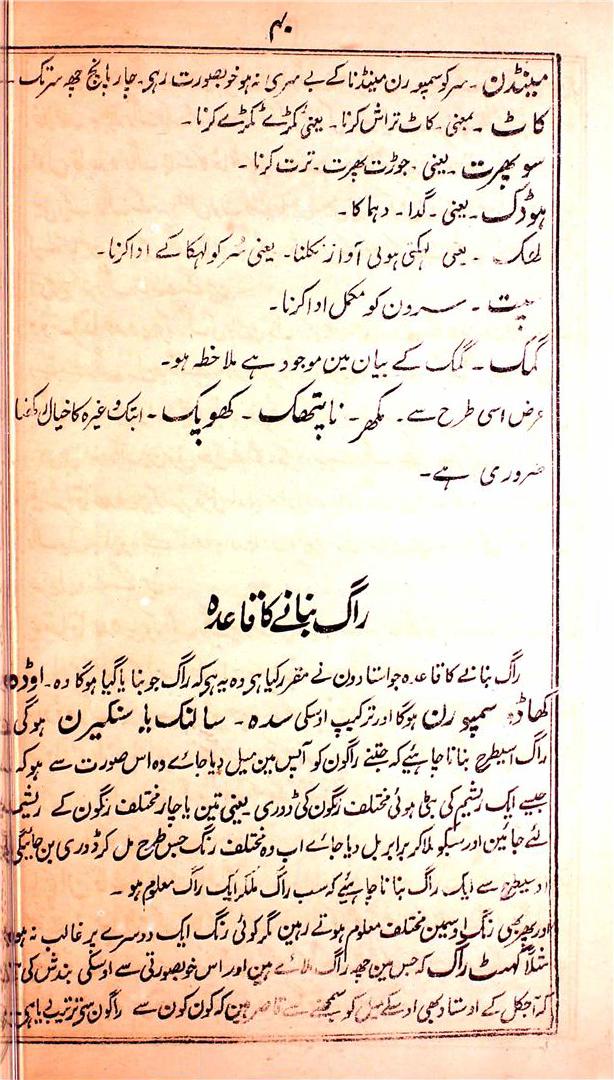 ۴۰
مینڈدن ۔ سر کو سمپورن مینڈنا کے بے مہری نہ ہو خوبصورت رہی۔ چار پانچ چھ سر تک
کاٹ ۔ بمعنی ۔ کاٹ تراش کرنا ۔ یعنی ٹکڑے ٹکڑے کرنا۔
سوپھرت ۔ یعنی ۔ جوڑت پھرت ۔ ترت کرنا ۔
ہوڈک ۔ یعنی ۔ گدا ۔ دہاکا۔
لہک ۔ یعنی لہکتی ہوئی آواز نکلنا۔ یعنی سُر کو لہکا کے ادا کرنا۔
۔ سرون کو مکمل ادا کرنا۔
گمک ۔ گمک کے بیان مین موجود ہے ملاخطہ ہو۔
غرض اسی طرح سے ۔ مکھر ۔ ناپتھک ۔ کھوپک ۔ ابتک وغیرہ کا خیال رکھنا
ضروری ہے۔
راگ بنانے کا قاعدہ
راگ بنانے کا قاعدہ جو استادون نے مقرر کیا ہی وہ یہ ہی کہ راگ جو بنایا گیا ہوگا وہ۔ اوڈہ
کھاڈہ سمپورن ہوگا اور ترکیپ اوسکی سدہ ۔ سالنک یا سنکیرن ہوگی
راگ اسیطرح بنانا چاہئیے کہ جتنے راگون کو آپس مین میل دیا جاے وہ اس صورت سے ہو کہ
جیسے ایک ریشیم کی بٹی ہوئی مختلف رنگون کی ڈوری یعنی تین یا چار مختلف رنگون کے ریشیم
لئے جائین اور سبکو ملا کر برابر بل دیا جاے اب وہ مختلف رنگ جس طرح مل کر ڈوری بن جائیگی
اوسیطرح سے ایک راگ بنانا چاہئیے کہ سب راگ ملکر ایک راگ معلوم ہو ۔
اور پھر بھی رنگ اوسمین مختلف معلوم ہوتے رہین مگر کوئی رنگ ایک دوسرے پر غالب نہ ہو
مثلاً کھٹ راگ کہ جس مین چھہ راگ ملائے ہین اور اس خوبصورتی سے اوسکی بندش کی
کہ آجکل کے اوستاد بھی اوسکے میل کو سمجھنے سے قاصر ہین کہ کون کون سے راگون سے ترتیب پایا ہی